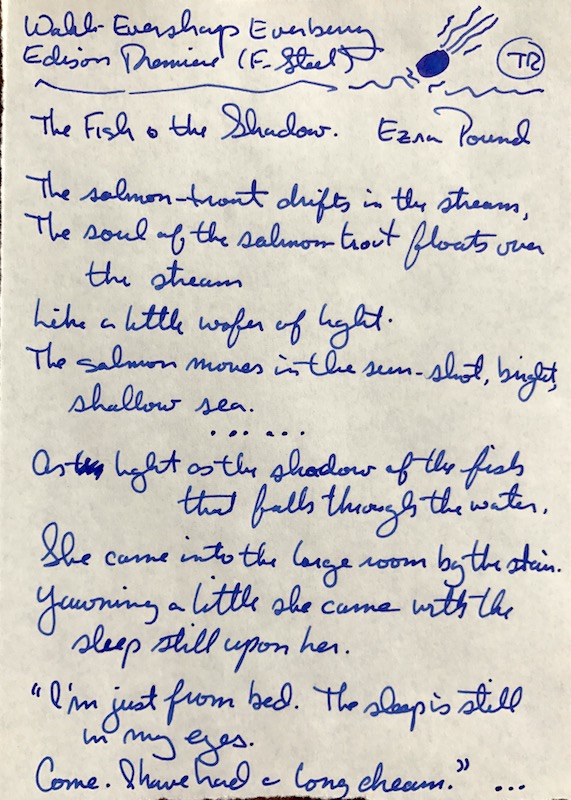 Wahl-Eversharp Everberry
Edison Premiere (F-Steel)
TR
The Fish & the Shadow. Ezra Pound
The salmon-trout drifts in the stream,
The soul of the salmon-trout floats over
the stream
Like a little wafer of light.
The salmon moves in the sun-shot, bright,
shallow sea.
......
As light as the shadow of the fish
that falls through the water,
She came into the large room by the stair.
Yawning a little she came with the
sleep still upon her.
"I'm just from bed. The sleep is still
in my eyes.
Come. I have had a long dream." ...